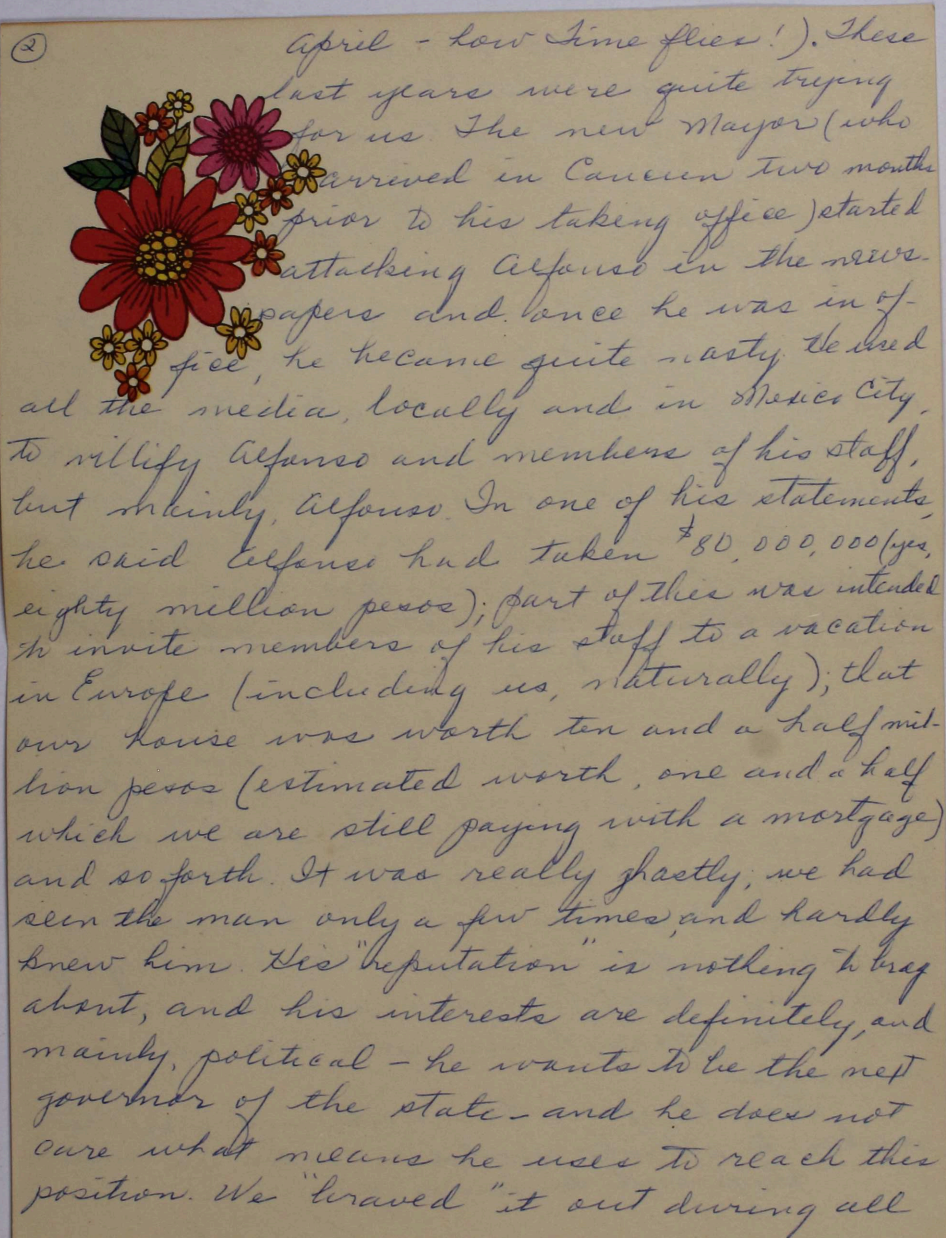 ②
April - how time flies!). These
last years were quite trying
for us. The new Mayor (who
arrived in Cancun two months
prior to his taking office) started
attacking Alfonso in the news-
papers and once he was in of-
fice, he became quite nasty. He used
all the media, locally and in Mexico City,
to villify Alfonso and members of his staff,
but mainly, Alfonso. In one of his statements,
he said Alfonso had taken $80,000,000 (yes,
eighty million pesos); part of this was intended
to invite members of his staff to a vacation
in Europe (including us, naturally); that
our house was worth ten and a half mil-
lion pesos (estimated worth, one and a half
which we are still paying with a mortgage)
and so forth. It was really ghastly, we had
seen the man only a few times, and hardly
knew him. His "reputation" is nothing to brag
about, and his interests are definitely, and
mainly, political - he wants to be the next
governor of the state - and he does not
care what means he uses to reach this
position. We "braved" it out during all